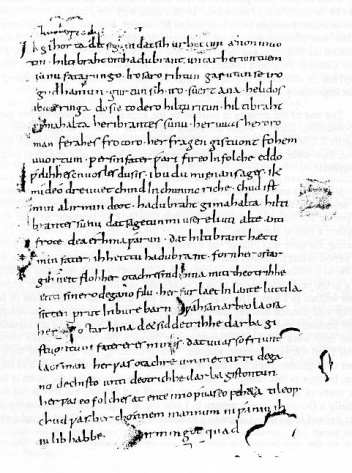 Ik gihorta dat seggen dat sih urhettun ænon muo
tin . hiltibraht enti hadubrant . untar heriun tuem
sunu fatarungo . iro saro rihtun garutun se iro
gudhamun . gurtun sih . iro . suert ana . helidos
ubar ringa do sie to dero hiltu ritun . hiltibraht
gimahalta heribrantes sunu . her uuas heroro
man ferahes frotoro . her fragen gistuont fohem
uuortum . ƿer sin fater ƿari fireo In folche eddo
ƿelihhes cnuosles du sis . ibu du mi ęnan sages . ik
mi de odre uuet chind In chunincriche . chud ist
min al irmin deot . hadubraht gimahalta hilti
brantes sunu dat sagetun mi usere liuti alte anti
frote dea erhina ƿarun . dat hiltibrant hætti
min fater . ih heittu hadubrant . forn her ostar
gihueit floh her otachres nid hina miti theotrihhe
enti sinero degano filu . her furlaet In lante luttila
sitten prut In bure barn unƿahsan arbeo laosa
her ostar hina d& sid d&rihhe darba gi
stuontum fateres mines . dat uuas so friunt
laos man . her ƿas otachre ummett irri dega
no dechisto unti deotrichhe darba gistontun
her ƿas eo folches at ente imo ƿuas eo feh&a ti leop .
chud ƿas her chonnem mannum ni ƿaniu ih
iu lib habbe . irmingot quad